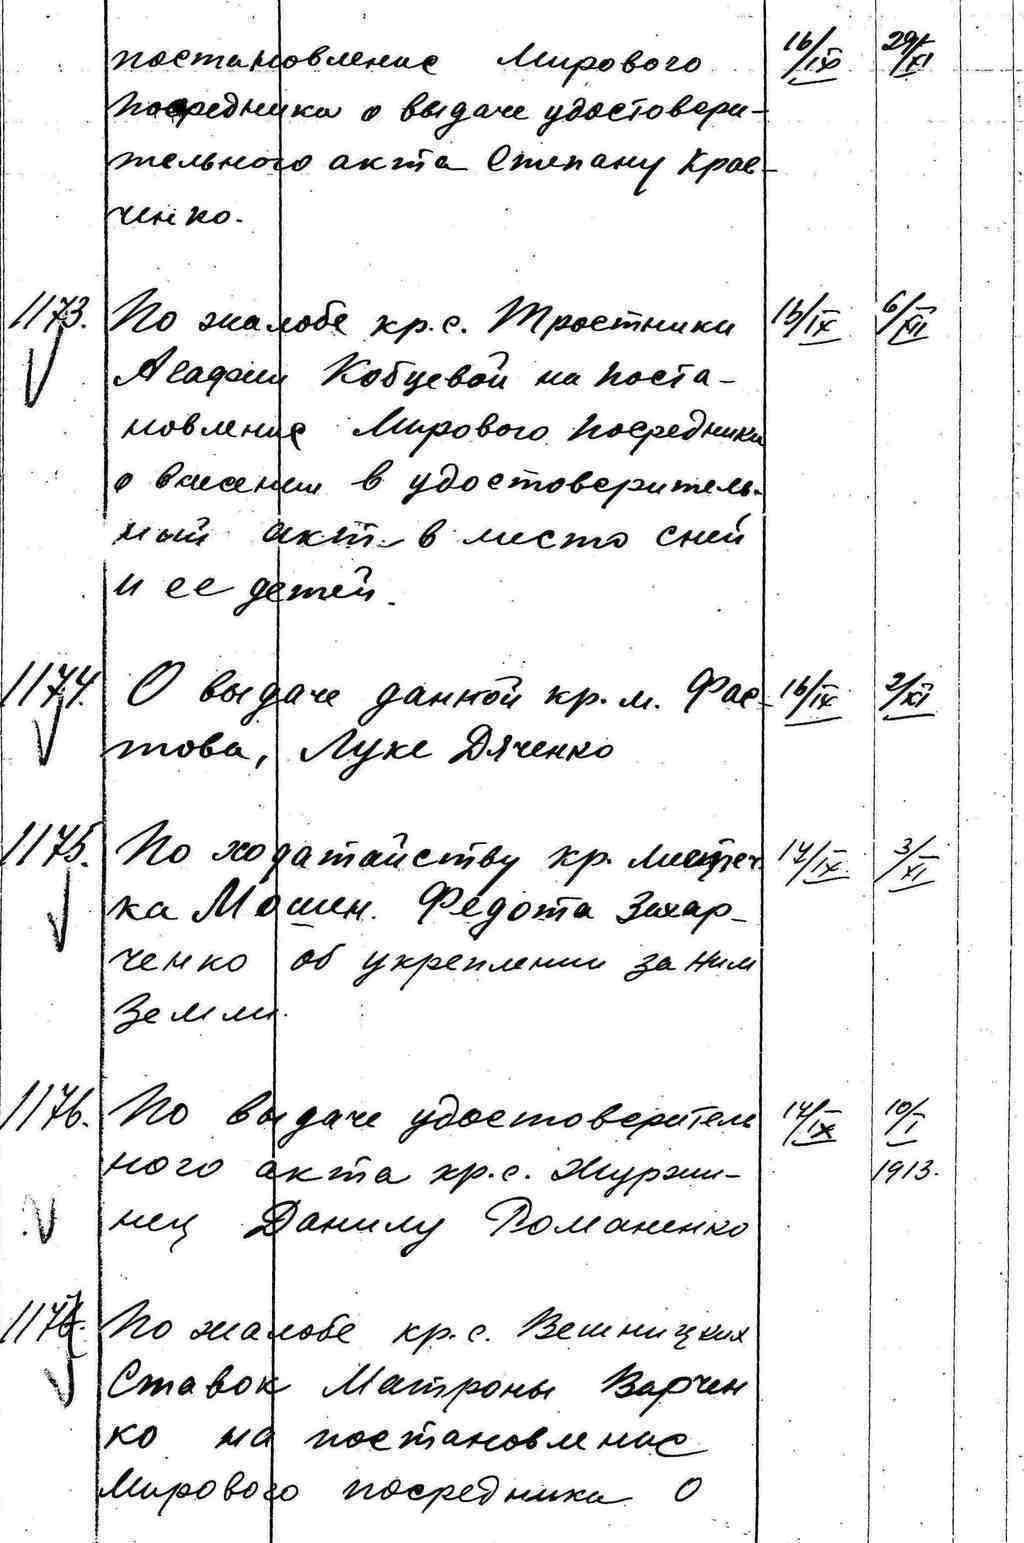 постановление Мирового 16/IX 29/XI
Посредника о выдаче удостовери-
тельного акта Степану Крав-
ченко.
1173. По жалобе кр. с. Тростники 16/IX 6/XII
Агафии Кобцевой на поста-
новление Мирового Посредника
о внесении в удостоверитель-
ный акт в место с ней
и ее детей.
1174. О выдаче данной кр. м. Фас- 16/IX 2/XI
това, Луке Дяченко
1175. По ходатайству кр. местеч- 17/IX 3/XI
ка Мошен. Федота Захар-
ченко об укреплении за ним
Земли.
1176. По выдаче удостоверитель 17/IX 10/I
ного акта кр. с. Журжи- 1913.
нец Данилу Романенко
По жалобе кр. с.
Ставок Матроны Варчен
ко на постановление
Мирового посредника О